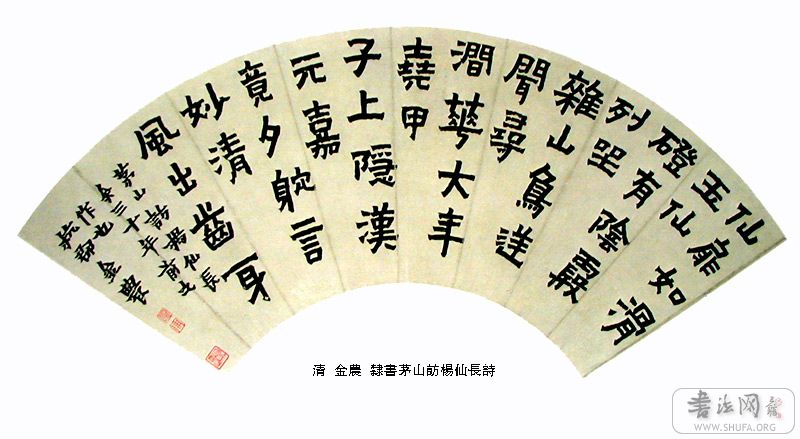 仙扉如滑
玉仙
磴有陰霞
列坐
雜山鳥送
聞尋
澗華大年
堯甲
子上隱漢
元嘉
竟夕躭言
妙清
風出齒牙
茅山訪楊仙長
三十年前之
作也
杭郡金農
清 金農 隸書茅山訪楊仙長詩
书法网
WWW.SHUFA.ORG